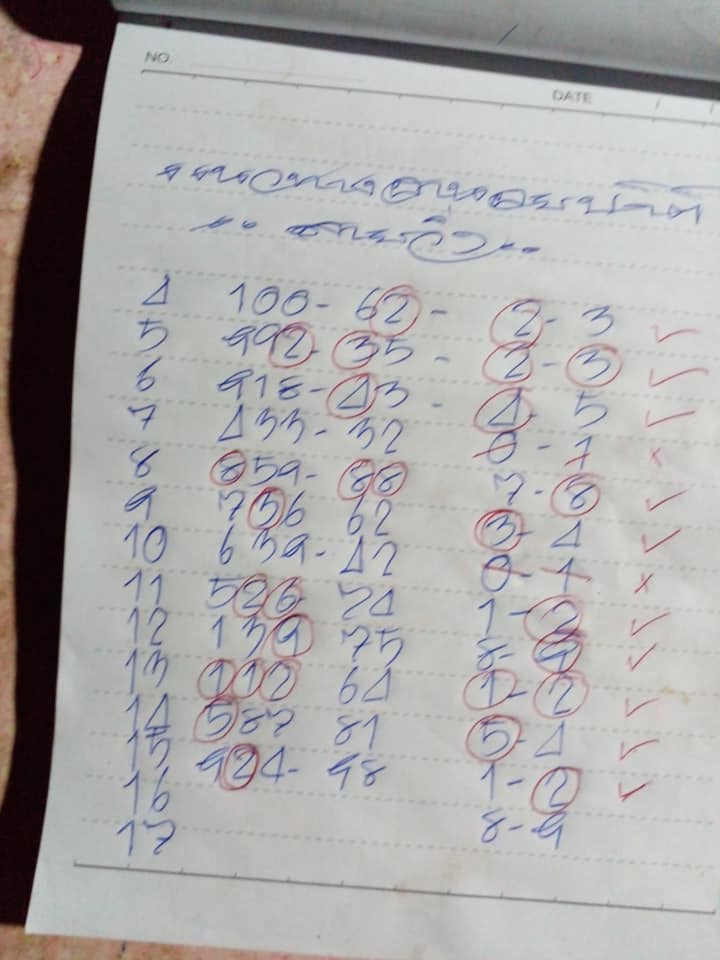 NO.
DATE / /
แนวทางฮานอยปกติ
4 100 - 62 - 2 - 3 ✓
5 992 - 35 - 2 - 3 ✓
6 918 - 43 - 4 - 5 ✓
7 433 - 32 0 - 1 ×
8 859 - 88 7 - 8 ✓
9 756 62 3 - 4 ✓
10 639 - 42 0 - 1 ×
11 526 74 1 - 2 ✓
12 139 75 8 - 9 ✓
13 112 64 1 - 2 ✓
14 587 81 5 - 4 ✓
15 924 - 98 1 - 2 ✓
16 8 - 9
17